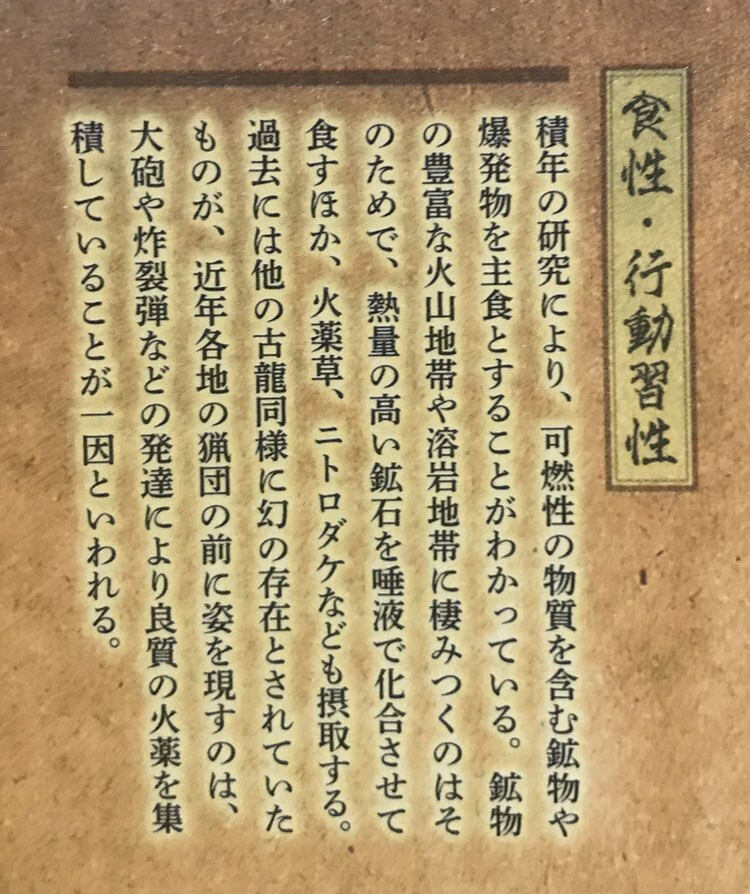 食性・行動習性
積年の研究により、可燃性の物質を含む鉱物や
爆発物を主食とすることがわかっている。鉱物
の豊富な火山地帯や溶岩地帯に棲みつくのはそ
のためで、熱量の高い鉱石を唾液で化合させて
食すほか、火薬草、ニトロダケなども摂取する。
過去には他の古龍同様に幻の存在とされていた
ものが、近年各地の猟団の前に姿を現すのは、
大砲や炸裂弾などの発達により良質の火薬を集
積していることが一因といわれる。